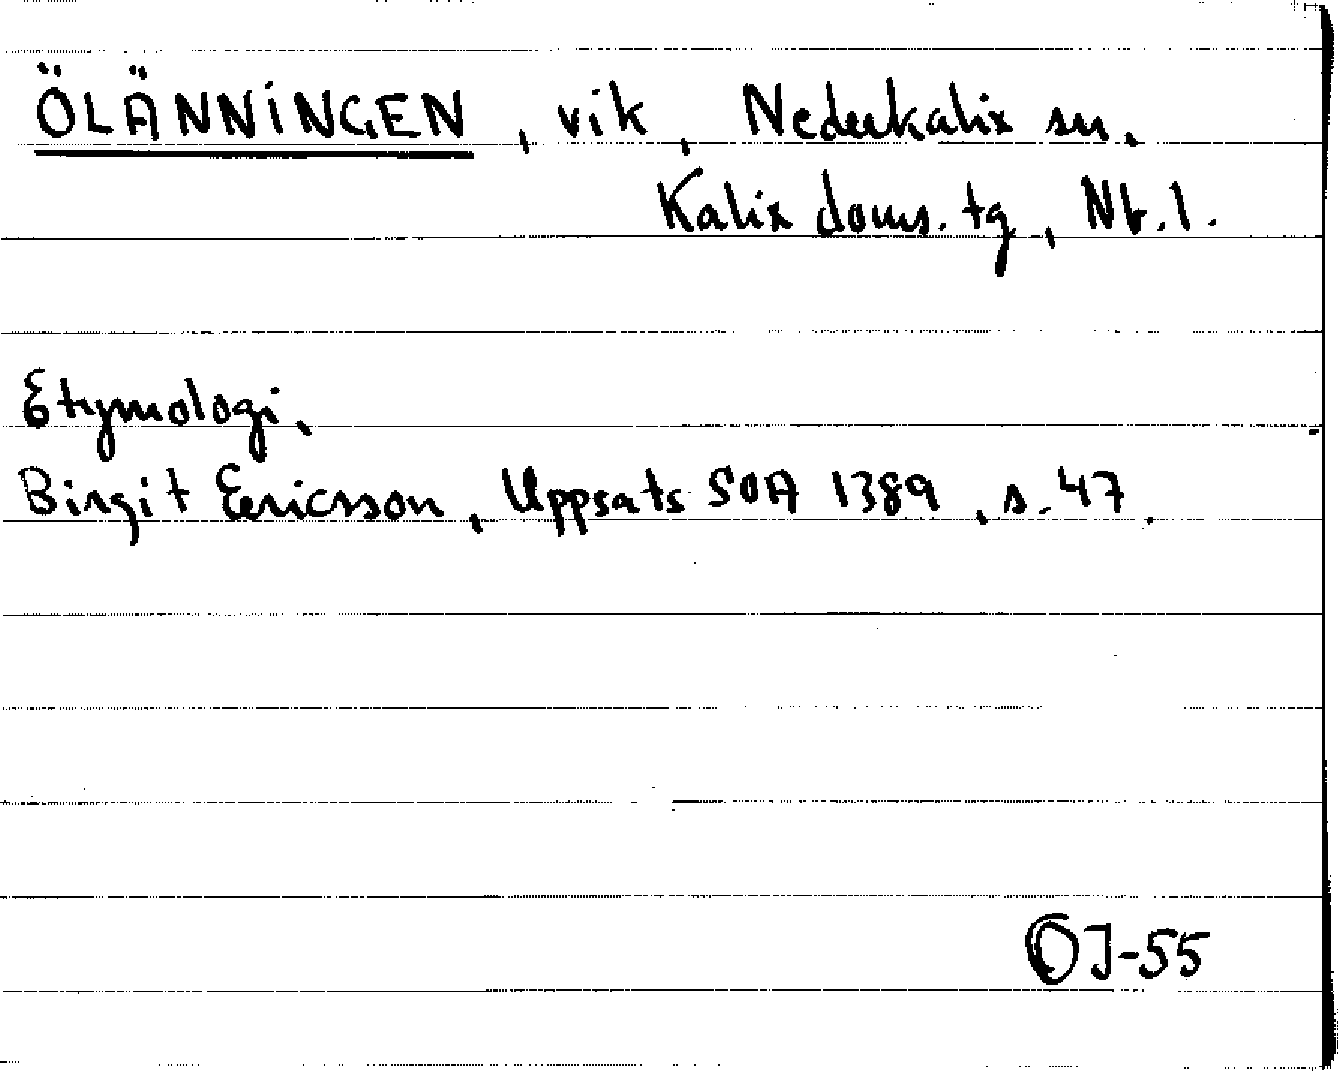 ÖLÄNNINGEN, vik, Nederkalix sn.
Kalix doms. tg, Nb. l.
Etymologi,
Birgit Ericsson, Uppsats SOA 1389, s. 47.
OJ-55